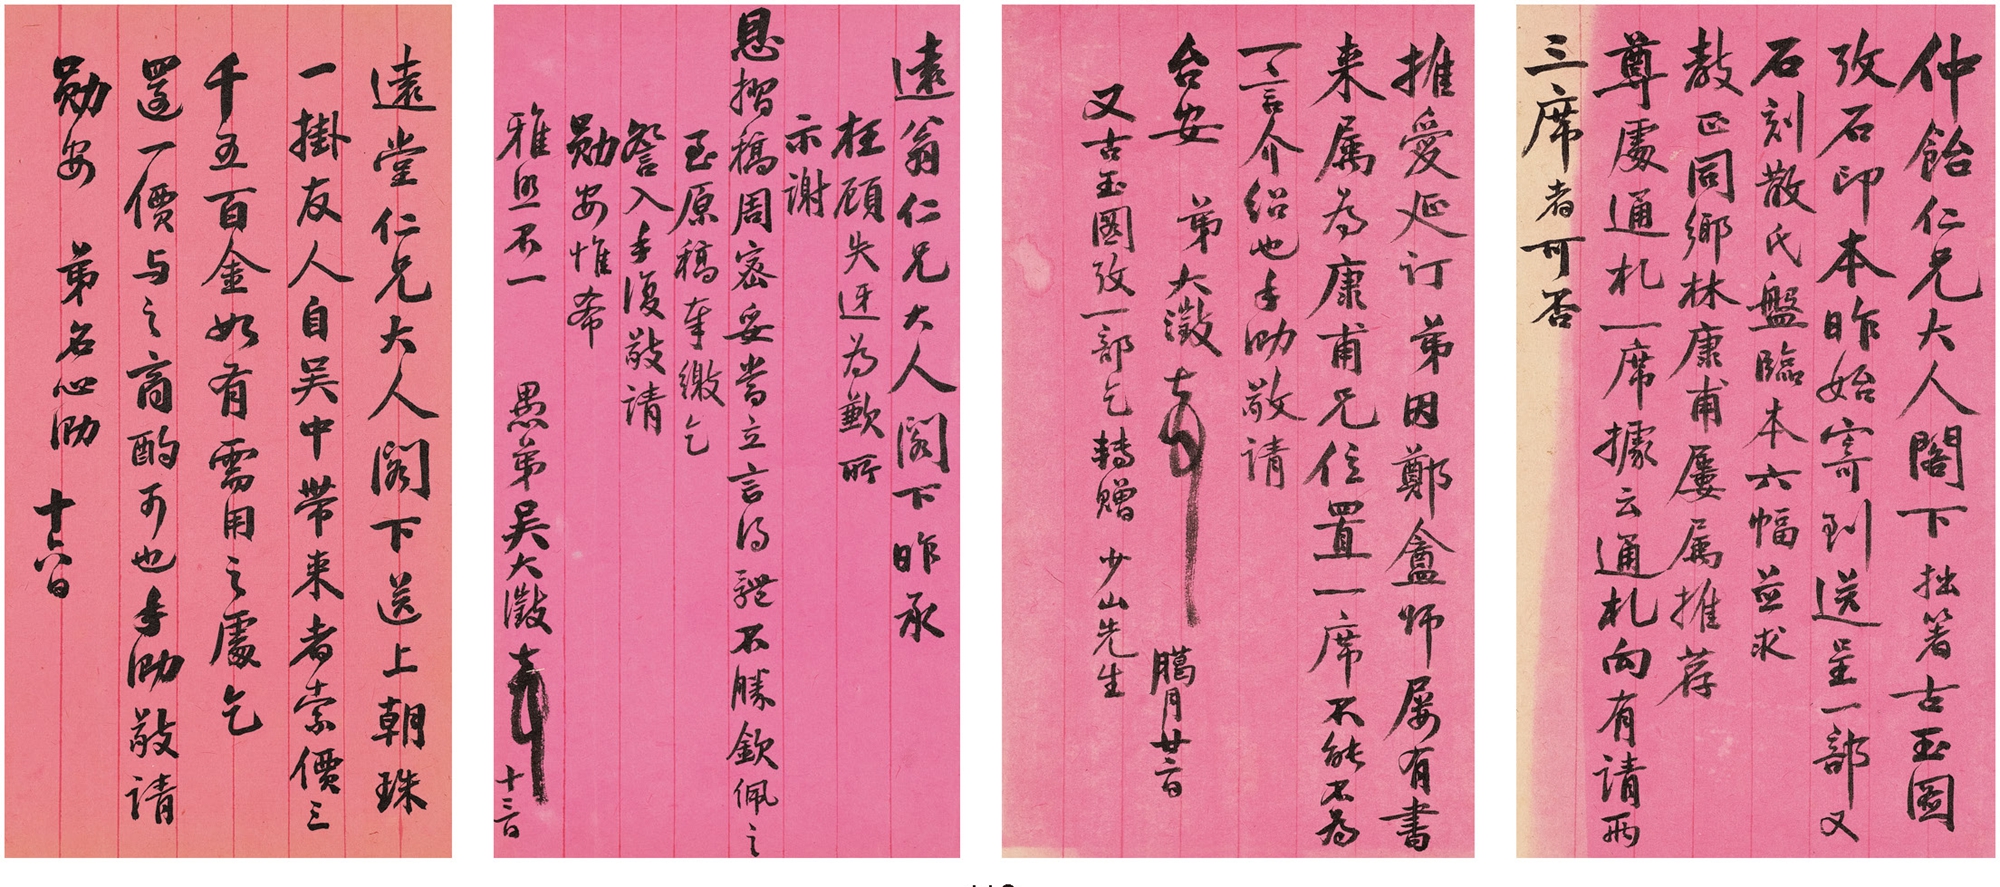 仲飴仁兄大人閣下拙箸古玉圖
攷石印本昨始寄到送呈一部又
石刻散氏盤臨本六幅並求
教正同鄉林康甫屢属推荐
尊處通札一席據云通札向有請兩
三席者可否
推愛延订弟因鄭盦師屡有書
来属為康甫兄位置一席不能不為
一言介绍也手泐敬請
台安 弟大澂
臈月廿二日
又古玉圖攷一部乞轉贈 少山先生
遠翁仁兄大人閣下昨承
枉顧失迓為歉所
示謝
恩摺稿周密妥當立言得體不勝欽佩之
至原稿奉繳乞
詧入手復敬請
勛安惟希
雅照不一
愚弟吴大澂
十三日
遠堂仁兄大人閣下送上朝珠
一掛友人自吴中带来者索價三
千五百金如有需用之處乞
還一價与之商酌可也手泐敬請
勛安 弟名心泐 十八日